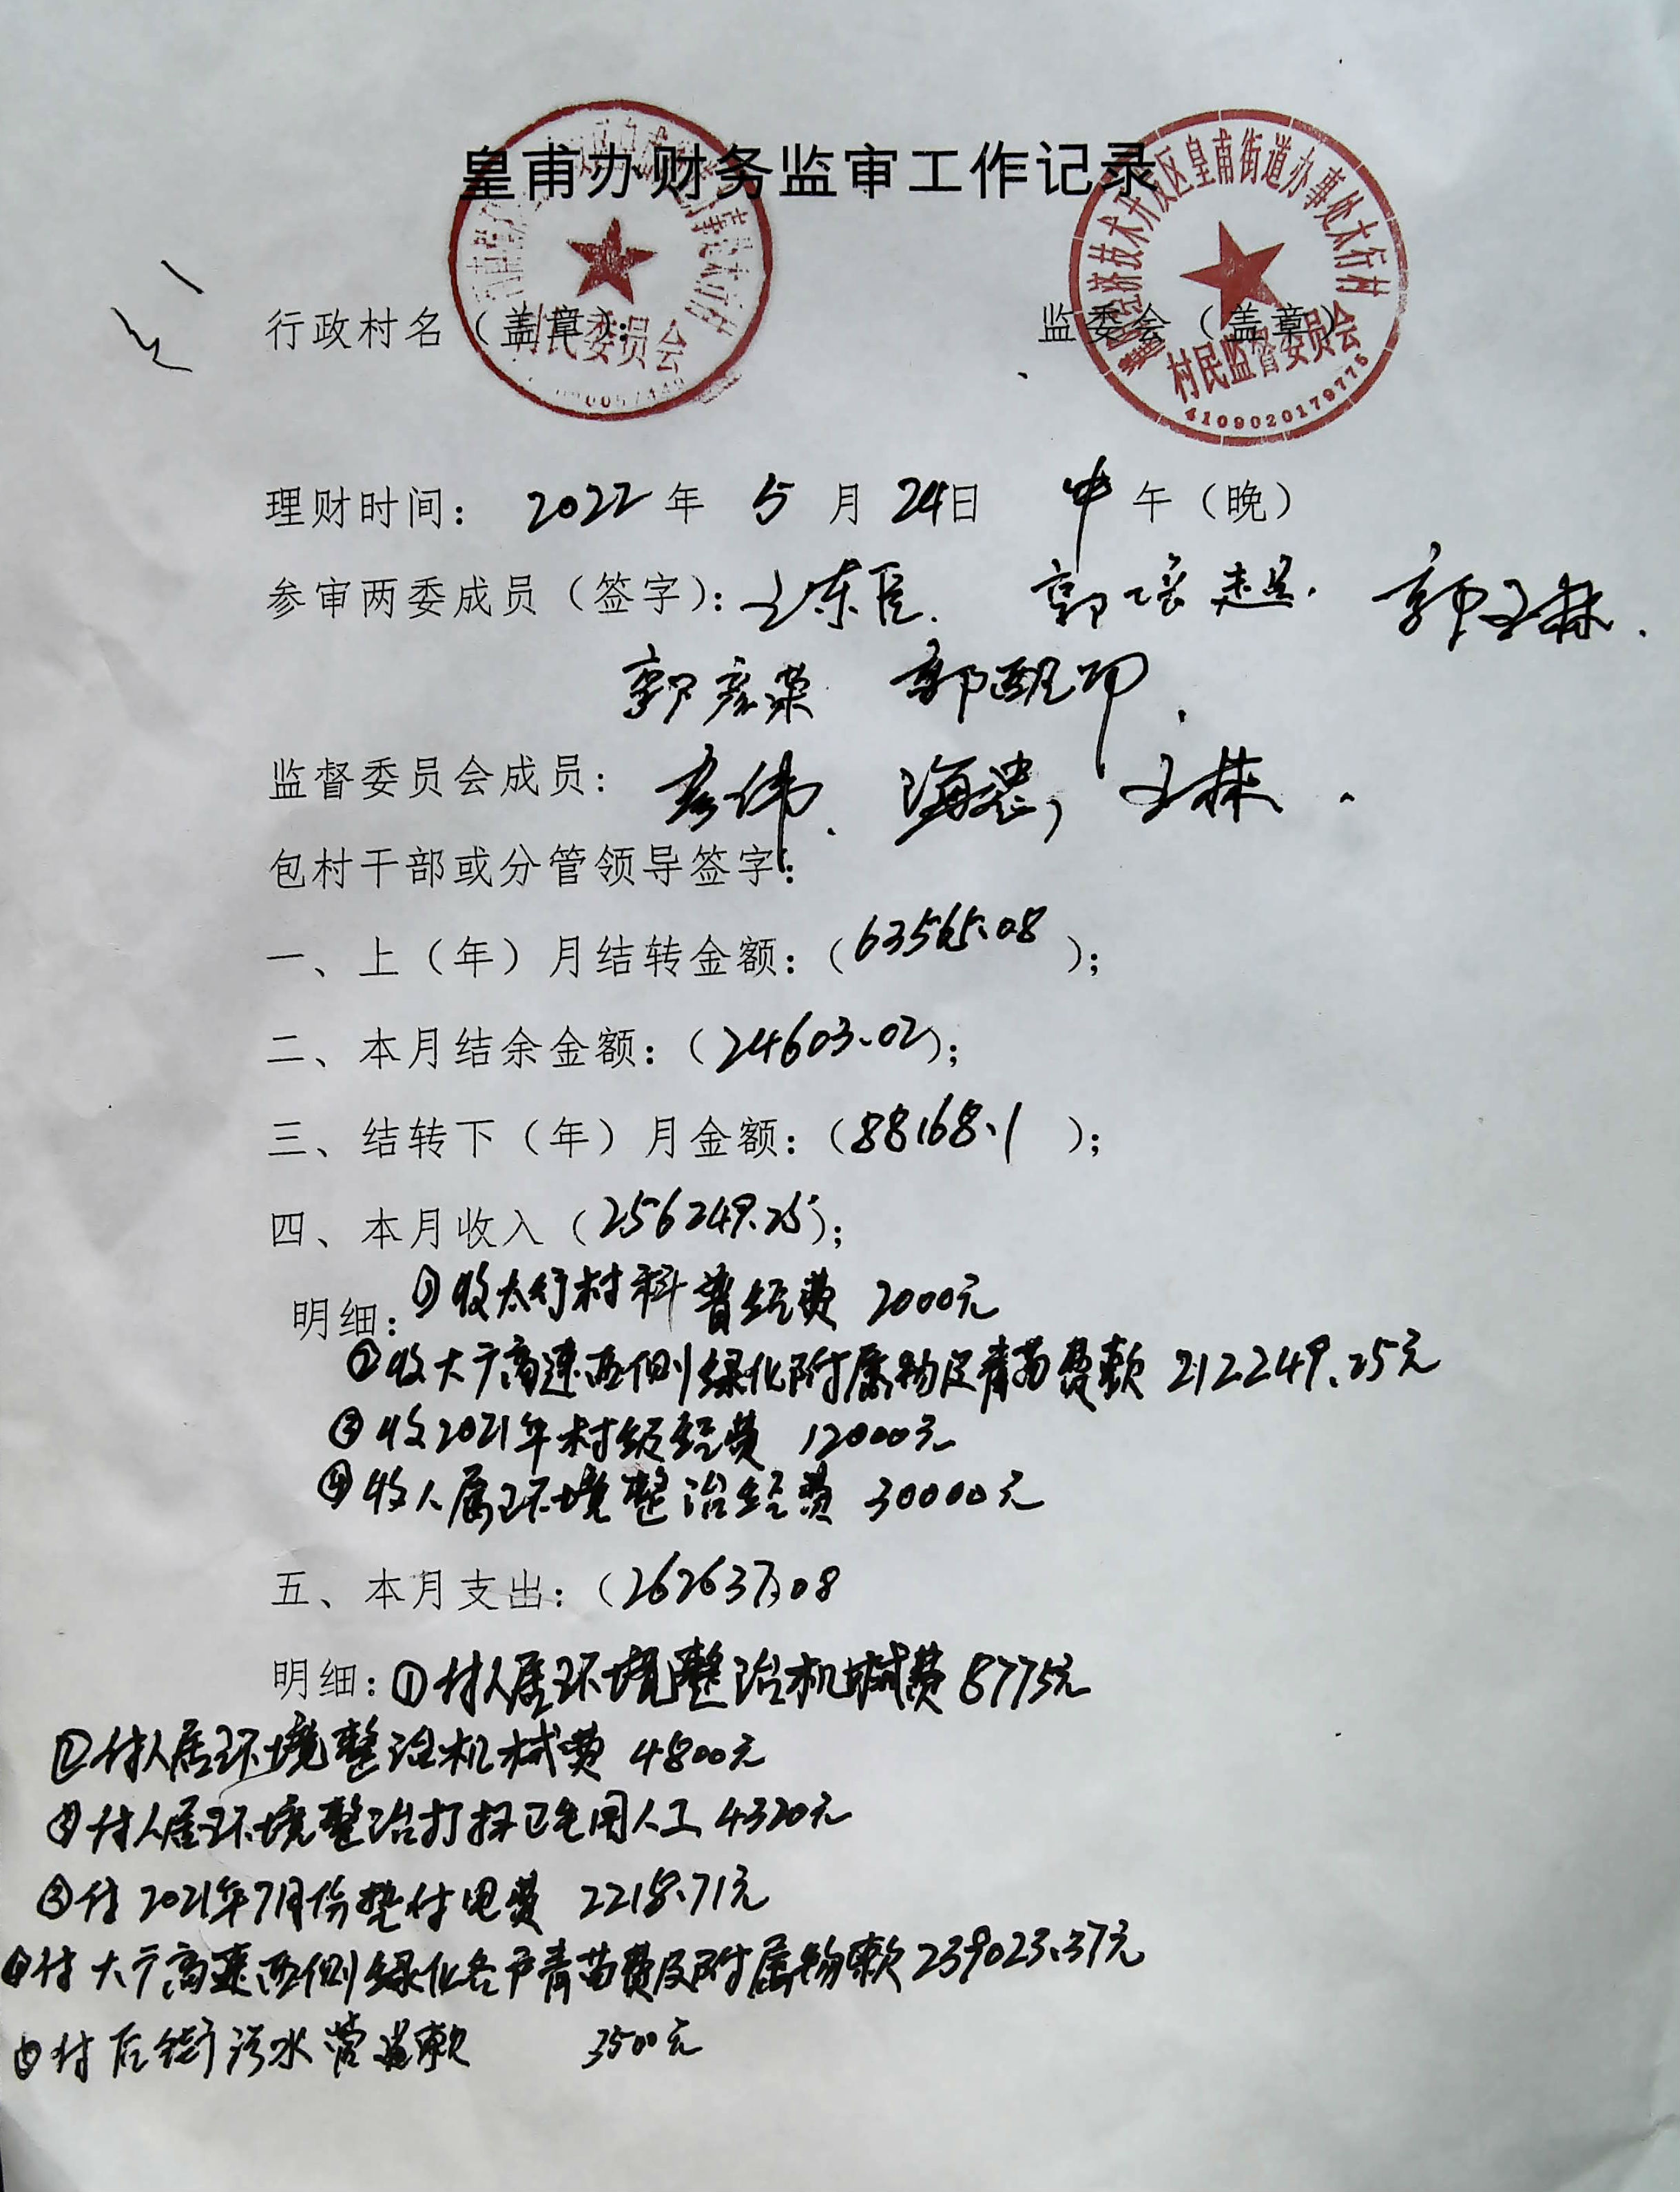 皇甫办财务监审工作记录
行政村名（盖章）： 监委会（盖章）
村民委员会
经济技术开发区皇甫街道办事处太行村
村民监督委员会
4109020179775
理财时间： 2022 年 5 月 24日 中 午（晚）
参审两委成员（签字）：王东臣. 郭培超. 郭玉林.
郭彦荣 郭
监督委员会成员： 彦伟、海忠， 玉林.
包村干部或分管领导签字：
一、上（年）月结转金额：（63565.08 ）；
二、本月结余金额：（24603.02）；
三、结转下（年）月金额：（88168.1 ）；
四、本月收入（256249.25）；
明细：①收太行村科普经费 2000元
②收大广高速西侧绿化附属物及青苗费款 212249.25元
③收2021年村级经费 12000元
④收人居环境整治经费 30000元
五、本月支出：（262637.08
明细：①付人居环境整治机械费 8775元
②付人居环境整治机械费 4800元
③付人居环境整治打扫卫生用人工 4320元
③付 2021年7月份垫付电费 2218.71元
④付大广高速西侧绿化各户青苗费及附属物款 239023.37元
⑤付后街污水管道款 3500元